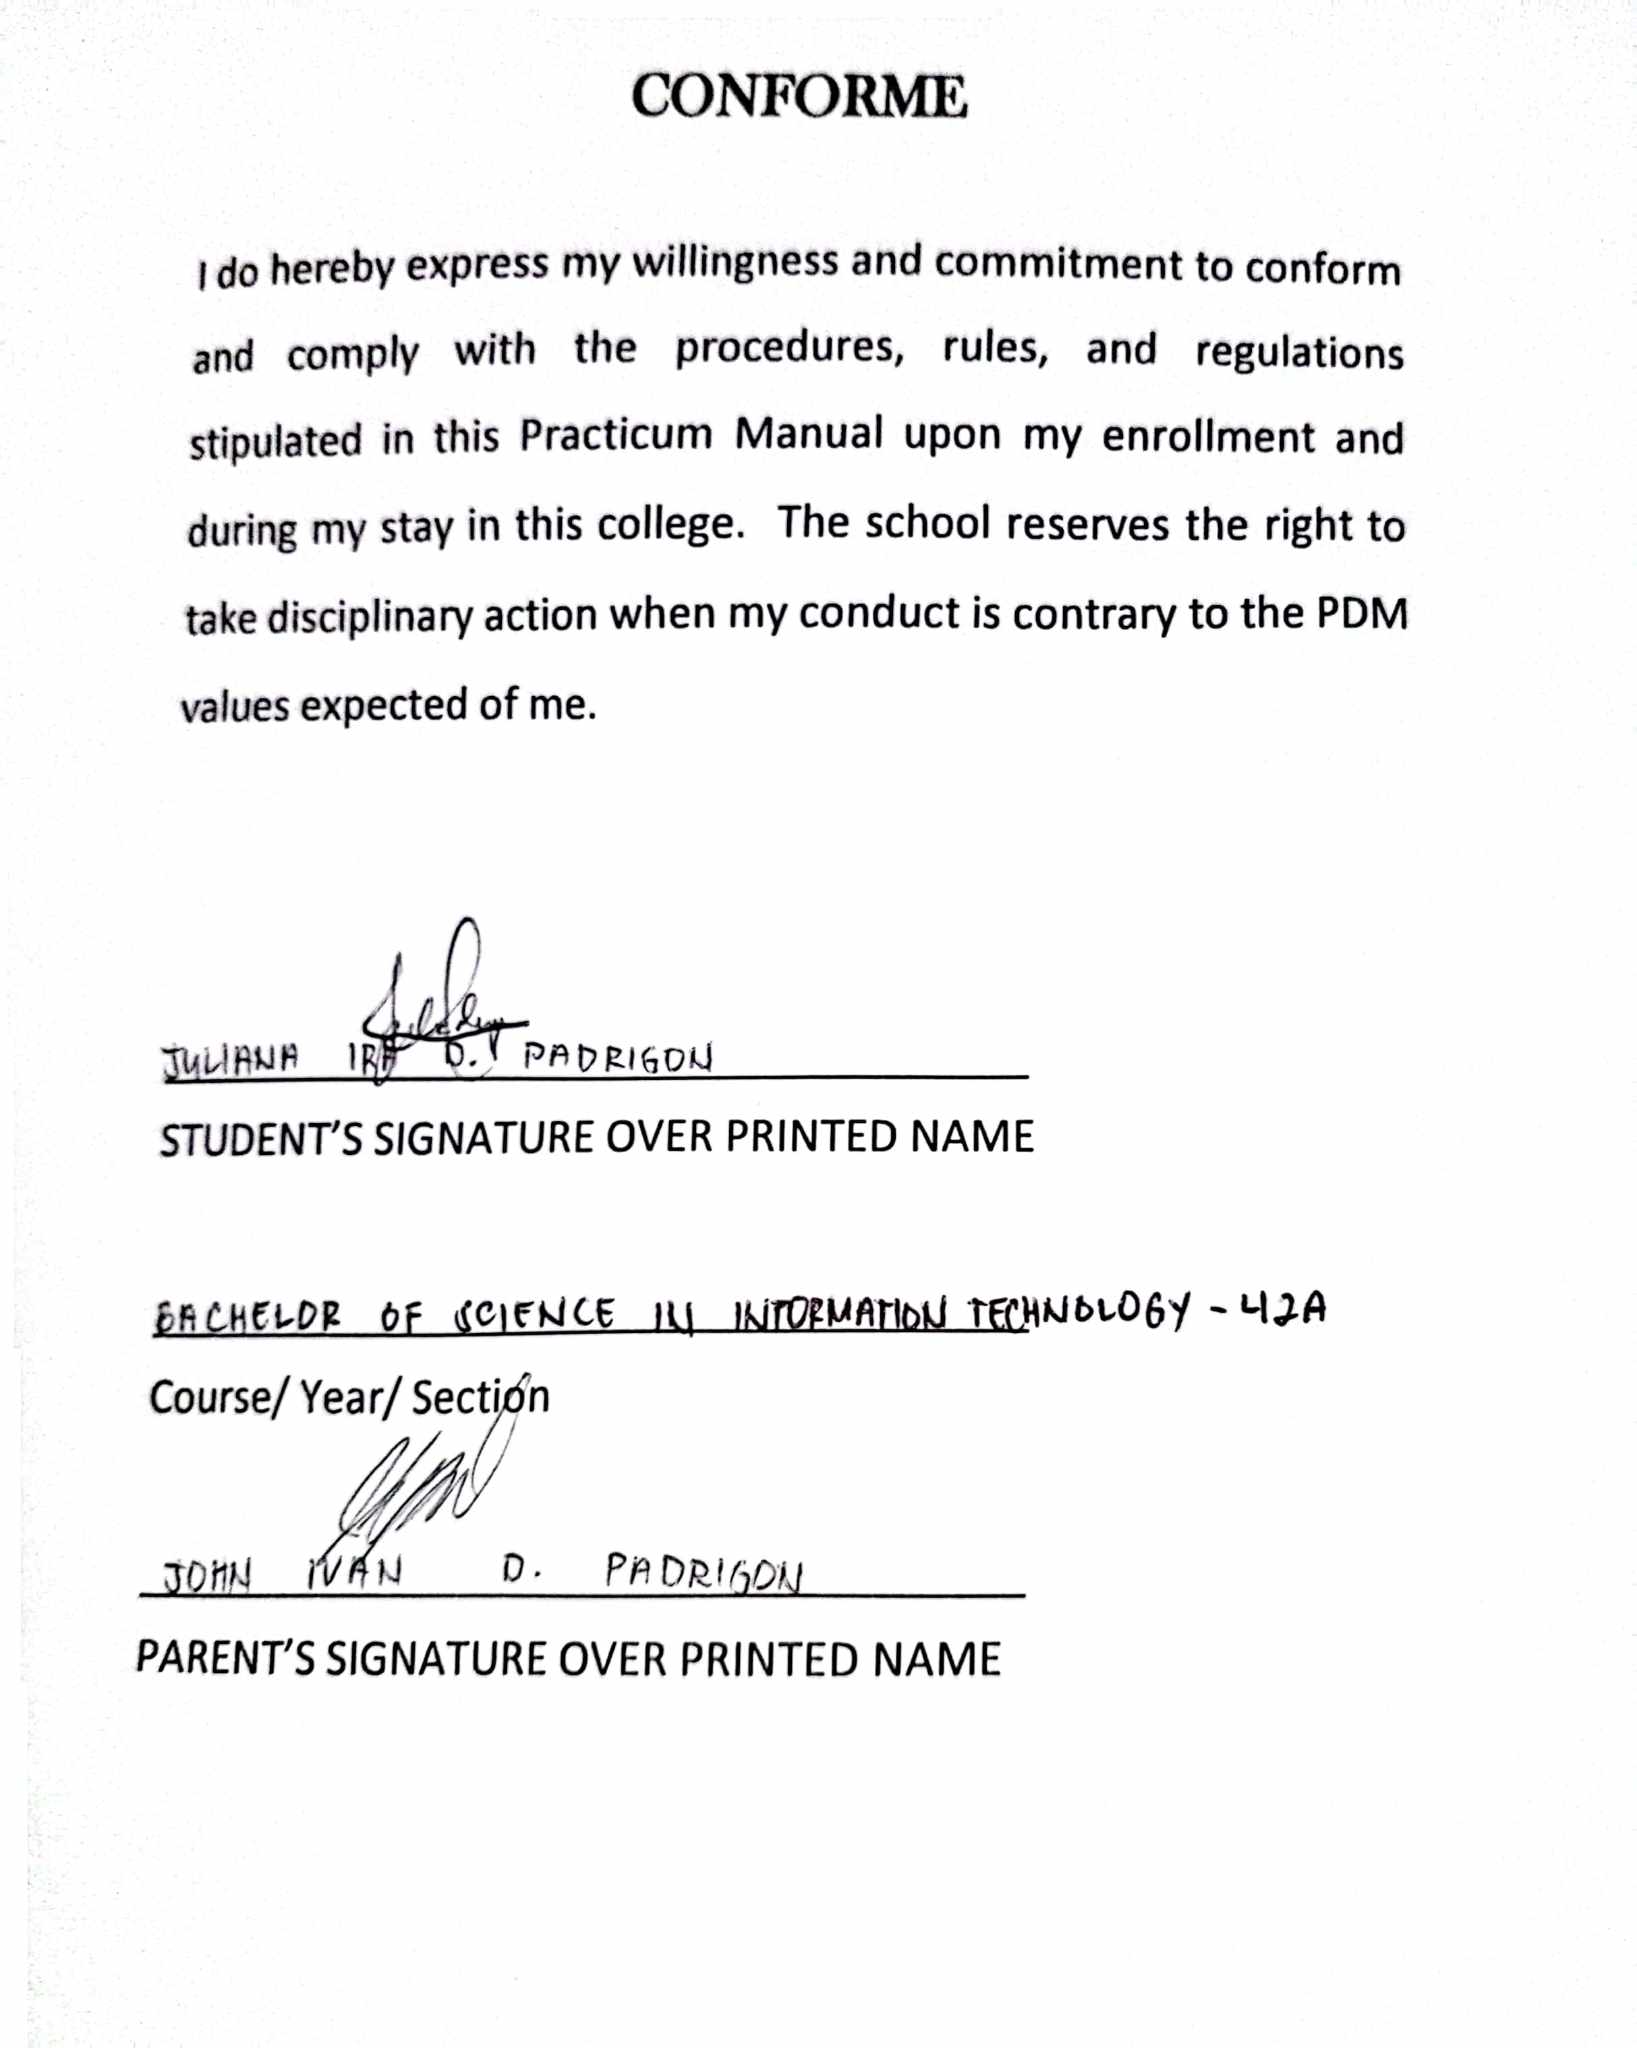 CONFORME
I do hereby express my willingness and commitment to conform
and comply with the procedures, rules, and regulations
stipulated in this Practicum Manual upon my enrollment and
during my stay in this college. The school reserves the right to
take disciplinary action when my conduct is contrary to the PDM
values expected of me.
JULIANA IRA D. PADRIGON
STUDENT'S SIGNATURE OVER PRINTED NAME
BACHELOR OF SCIENCE IN INFORMATION TECHNOLOGY - 42A
Course/ Year/ Section
JOHN IVAN D. PADRIGON
PARENT'S SIGNATURE OVER PRINTED NAME